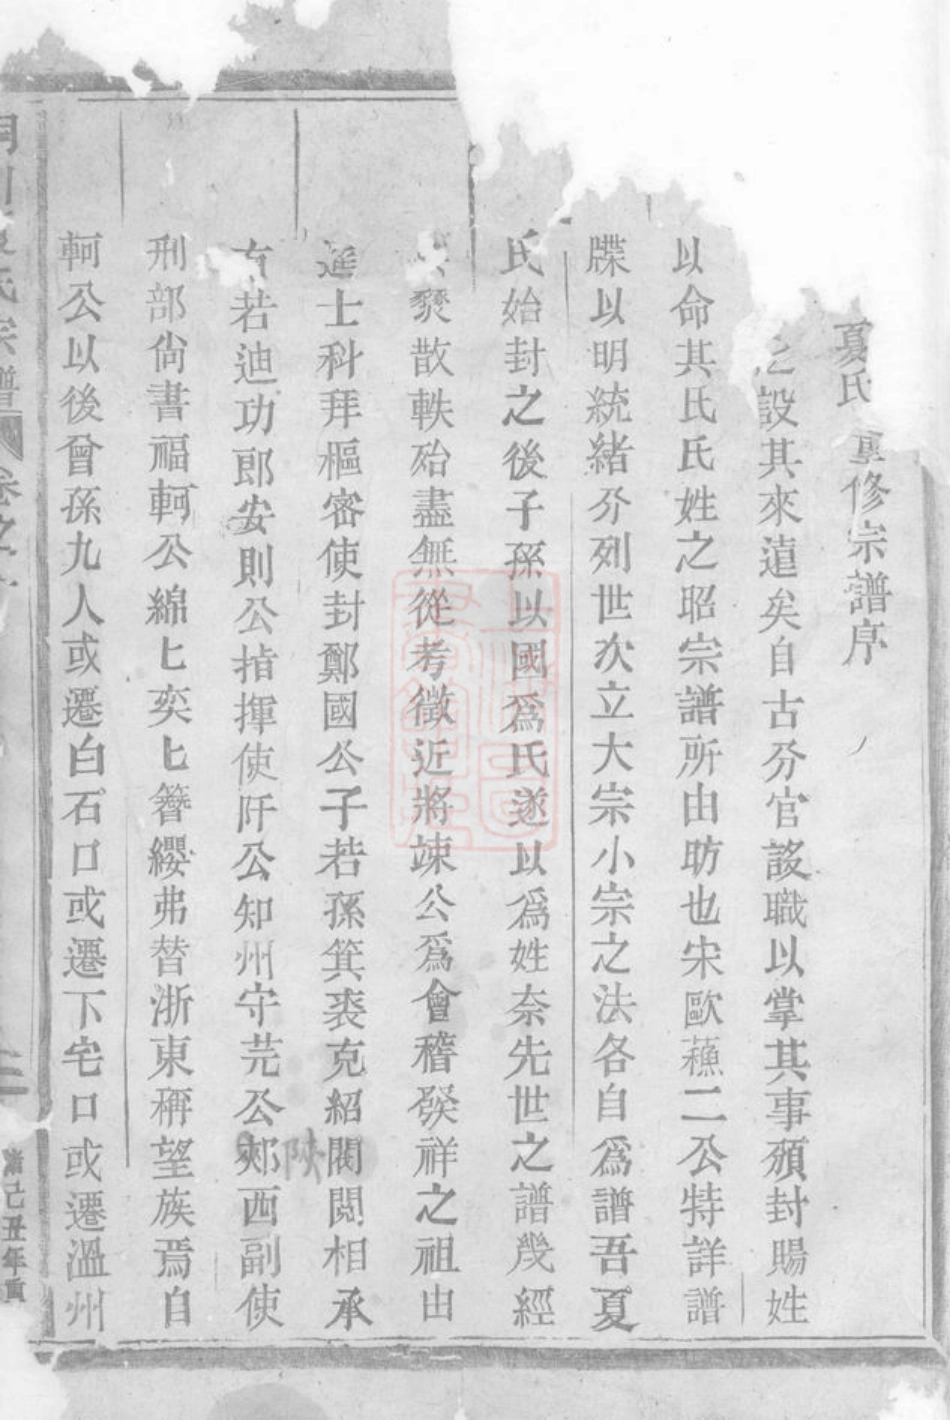 夏氏重修宗譜序
之設其來遠矣自古分官設職以掌其事頒封賜姓
以命其氏氏姓之昭宗譜所由昉也宋歐蘓二公特詳譜
牒以明統緒分列世次立大宗小宗之法各自爲譜吾夏
氏始封之後子孫以國爲氏遂以爲姓奈先世之譜幾經
燹散軼殆盡無從考徵近將竦公爲會稽發祥之祖由
進士科拜樞密使封鄭國公子若孫箕裘克紹閥閱相承
若迪功郎安則公指揮使阡公知州守芫公郟西副使
陝
刑部尚書福軻公綿匕奕匕簪纓弗替浙東稱望族焉自
軻公以後曾孫九人或遷白石口或遷下宅口或遷溫州
川夏氏宗譜 卷之
清己丑年重